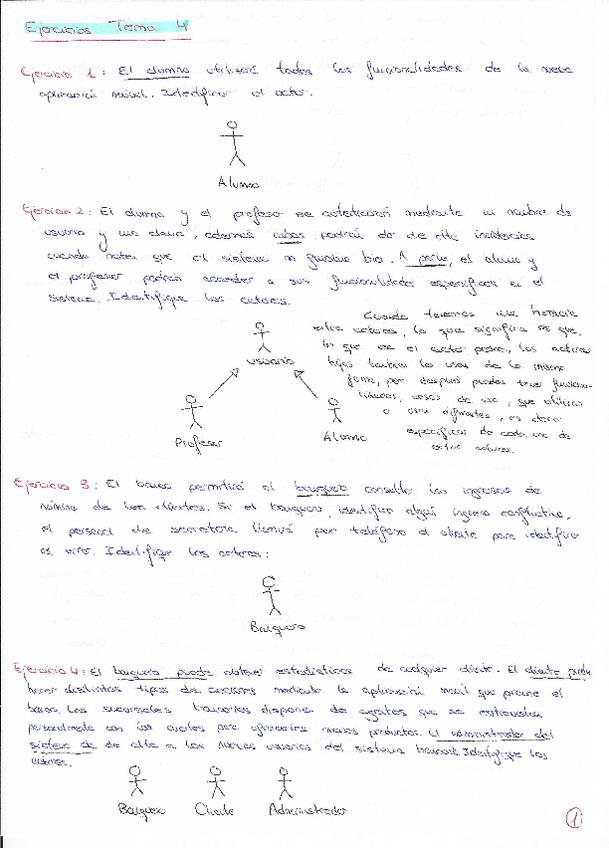 Ejercicios Tema 4
Ejercicio 1: El alumno utilizará todas las funcionalidades de la nueva
aplicación móvil. Identificar el actor.
Alumno
Ejercicio 2: El alumno y el profesor se autenticarán mediante un nombre de
usuario y una clave, además ambos podrán dar de alta incidencias
cuando noten que el sistema no funciona bien. A parte, el alumno y
el profesor podrán acceder a sus funcionalidades específicas en el
sistema. Identifique los actores.
Cuando tenemos una herencia
entre actores, lo que significa es que,
lo que usa el actor padre, los actores
hijos también lo usan de la misma
forma, pero después puedes tener funciona-
lidades, casos de uso, que utilicen
o usen diferentes, es decir
específicos de cada uno de
estos actores.
usuario
Profesor
Alumno
Ejercicio 3: El banco permitirá al banquero consultar los ingresos de
nómina de los clientes. Si el banquero, identifica algún ingreso conflictivo,
el personal de secretaría llamará por teléfono al cliente para identificar
el error. Identifique los actores:
Banquero
Ejercicio 4: El banquero puede obtener estadísticas de cualquier cliente. El cliente puede
hacer distintos tipos de acciones mediante la aplicación móvil que provee el
banco. Las sucursales bancarias disponen de agentes que se entrevistan
personalmente con los clientes para ofrecerles nuevos productos. El administrador del
sistema da de alta a los nuevos usuarios del sistema bancario. Identifique los
actores.
Banquero
Cliente
Administrador
1